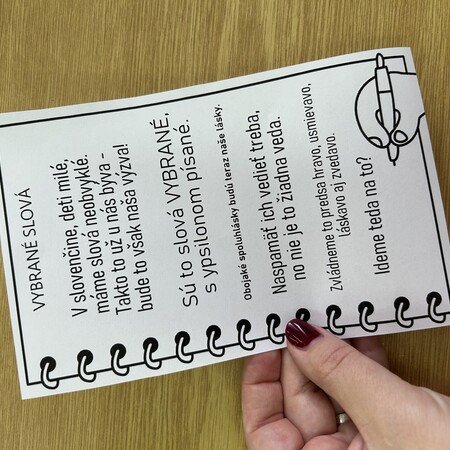 VYBRANÉ SLOVÁ
V slovenčine, deti milé,
máme slová neobvyklé.
Takto to už u nás býva -
bude to však naša výzva!
Sú to slová VYBRANÉ,
s ypsilonom písané.
Obojaké spoluhlásky budú teraz naše lásky.
Naspamäť ich vedieť treba,
no nie je to žiadna veda.
Zvládneme to predsa hravo, usmievavo,
láskavo aj zvedavo.
Ideme teda na to?